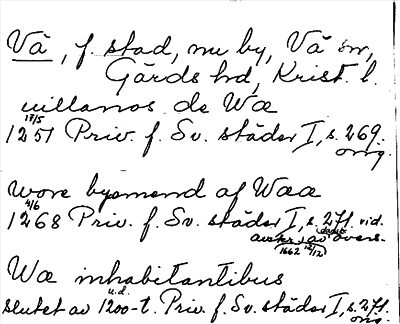 Vä, f. stad, nu by, Vä sn,
Gärds hd, Krist. l.
villanos de Wæ
17/5
1251 Priv. f. Sv. städer I, s. 269.
orig.
wore byamend af Waa
4/6
1268 Priv. f. Sv. städer I, s. 271. vid.
dansk
avskr. av övers.
1662 12/12
Wæ inhabitantibus
u.d.
slutet av 1200-t. Priv. f. Sv. städer I, s. 271.
orig.